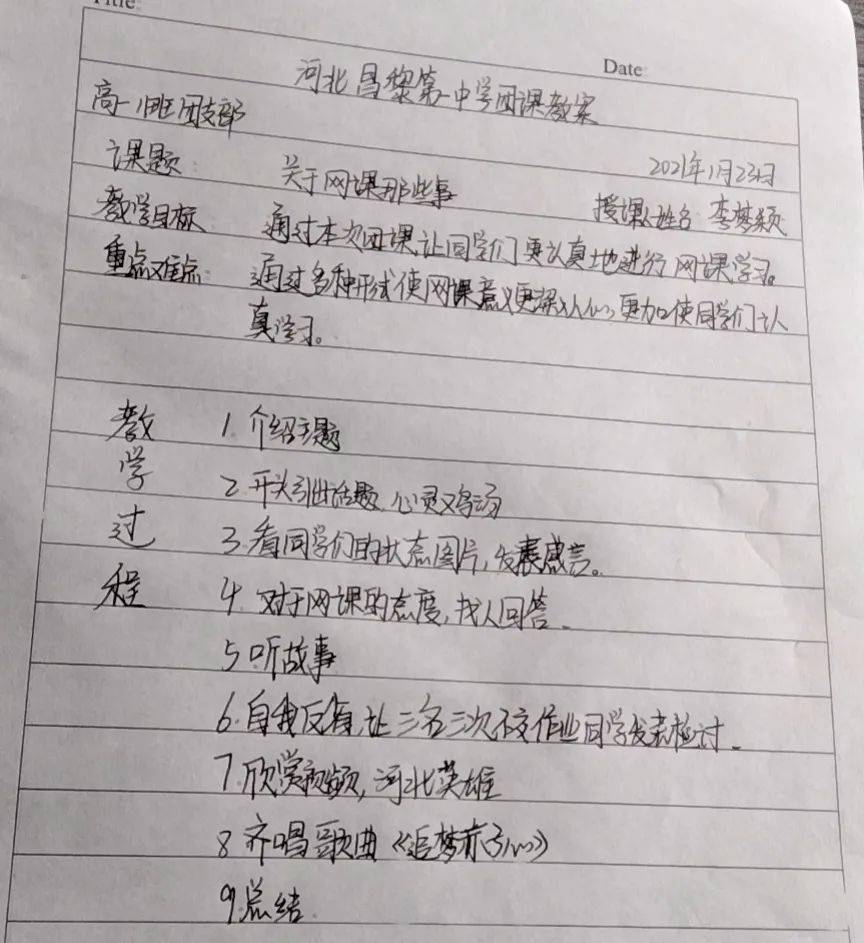 Title:
Date:
河北昌黎第一中学团课教案
高一 团支部
课题: 关于网课那些事 2021年1月23日
教学目标: 通过本次团课,让同学们更认真地进行网课学习。 授课人姓名 李梦颖
重点难点: 通过多种形式使网课意义更深入人心,更加使同学们认
真学习。
教学过程
1. 介绍主题
2. 开头引出话题,心灵鸡汤
3. 看同学们的状态图片,发表感言。
4. 对于网课的态度,找人回答。
5 听故事
6. 自我反省,让三名三次不交作业同学发表检讨。
7. 欣赏视频,河北英雄
8 齐唱歌曲《追梦赤子心》
9 总结